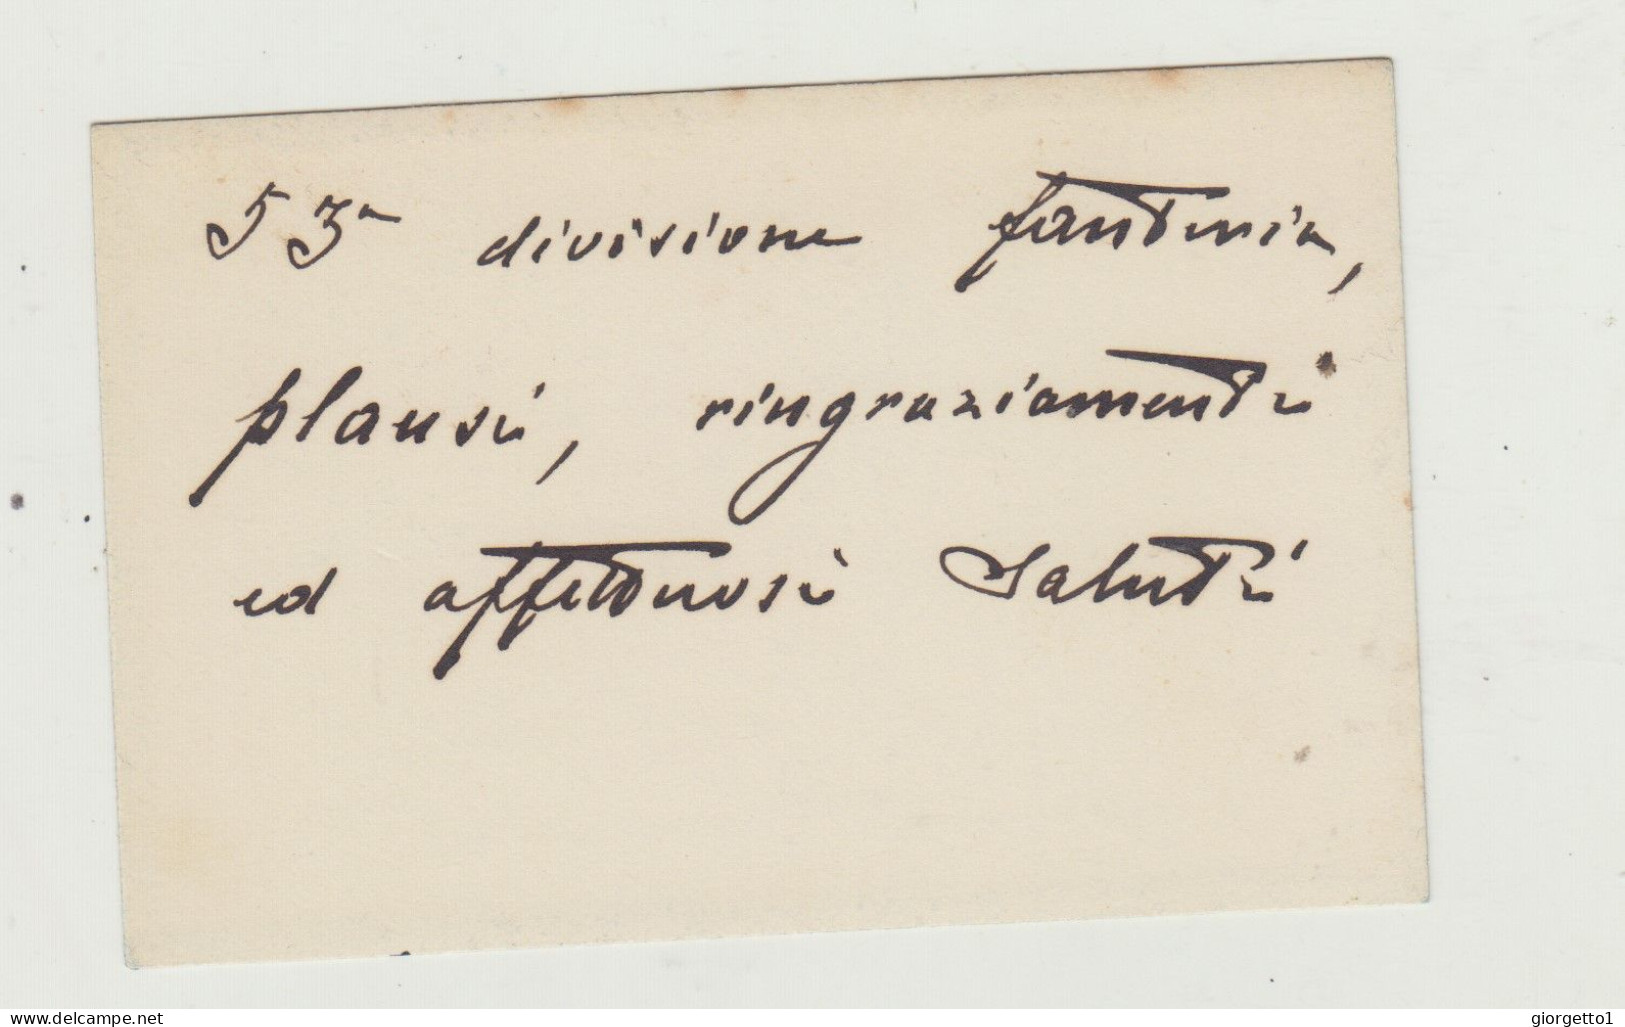 53ª divisione fanteria,
plausi, ringraziamenti
ed affettuosi saluti
www.delcampe.net
giorgetto1